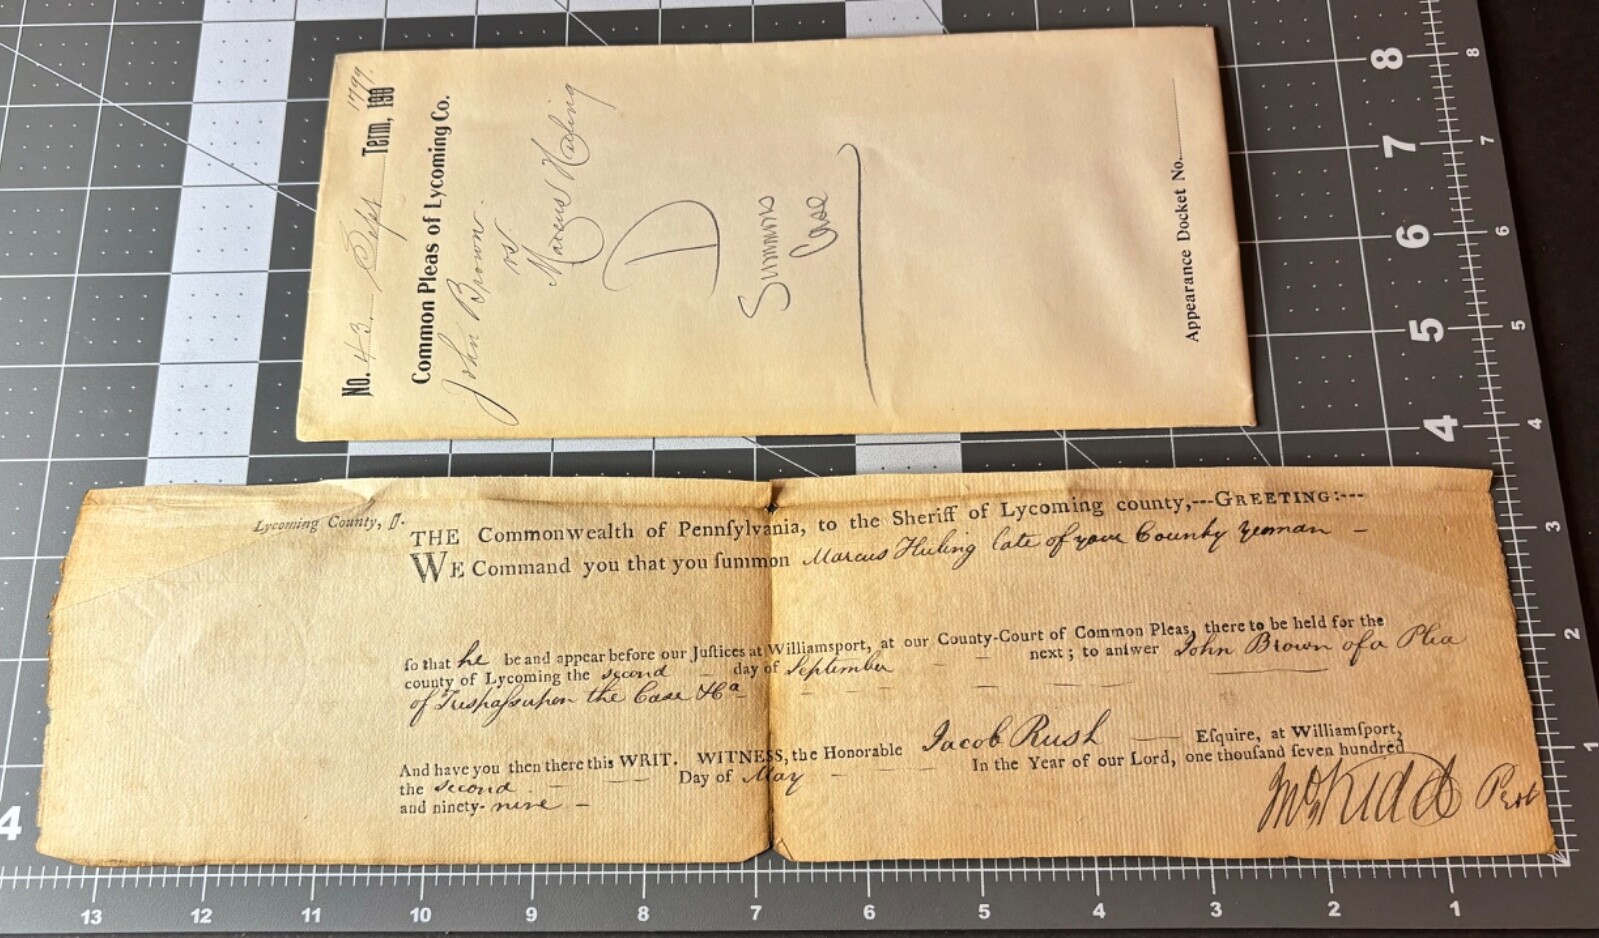 No. 43. Sept Term, 190 1799.
Common Pleas of Lycoming Co.
John Brown.
vs.
Marcus Huling
D
Summons
Case
Appearance Docket No.
Lycoming County, ſſ.
THE Commonwealth of Pennſylvania, to the Sheriff of Lycoming county,---GREETING:---
WE Command you that you ſummon Marcus Huling late of your County yeoman -
ſo that he be and appear before our Juſtices at Williamsport, at our County-Court of Common Pleas, there to be held for the
county of Lycoming the second day of September next; to anſwer John Brown of a Plea
of Treſpaſs upon the Case &ca
And have you then there this WRIT. WITNESS, the Honorable Jacob Rush Eſquire, at Williamſport,
the second Day of May In the Year of our Lord, one thouſand ſeven hundred
and ninety- nine -
Kidd
8
7
6
5
4
3
2
1
8
7
6
5
4
3
2
1
4
13 12 11 10 9 8 7 6 5 4 3 2 1